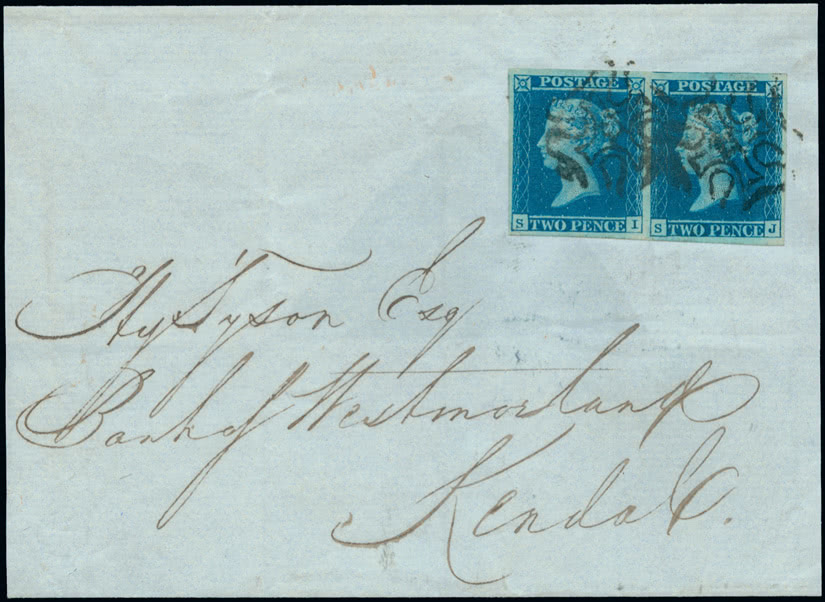 POSTAGE POSTAGE
S TWO PENCE I S TWO PENCE J
Hy Tyson Esq
Bank of Westmorland
Kendal.